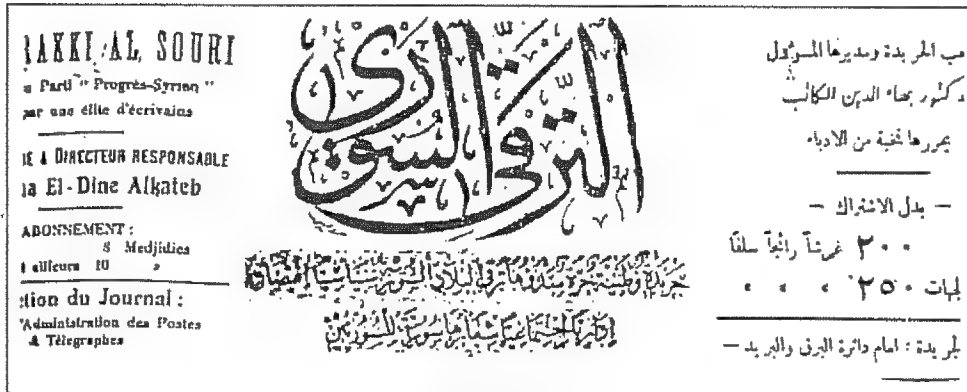 AKKI AL SOURI
Parti " Progrès-Syrien "
par une élite d'écrivains
& DIRECTEUR RESPONSABLE
El-Dine Alkateb
ABONNEMENT :
8 Medjidies
ailleurs 10 »
tion du Journal :
Administration des Postes
& Télégraphes
الترقي السوري
جريدة وطنية حرة مبدؤها ترقي البلاد السورية سياسيا اقتصاديا
اجتماعيا شعارها سورية للسوريين
حب الجريدة ومديرها المسؤول
دكتور بهاء الدين الكاتب
يحررها نخبة من الادباء
— بدل الاشتراك —
٢٠٠ غرشاً رائجاً سلفاً
لجهات ٢٥٠ » » »
لجريدة : امام دائرة البرق والبريد —